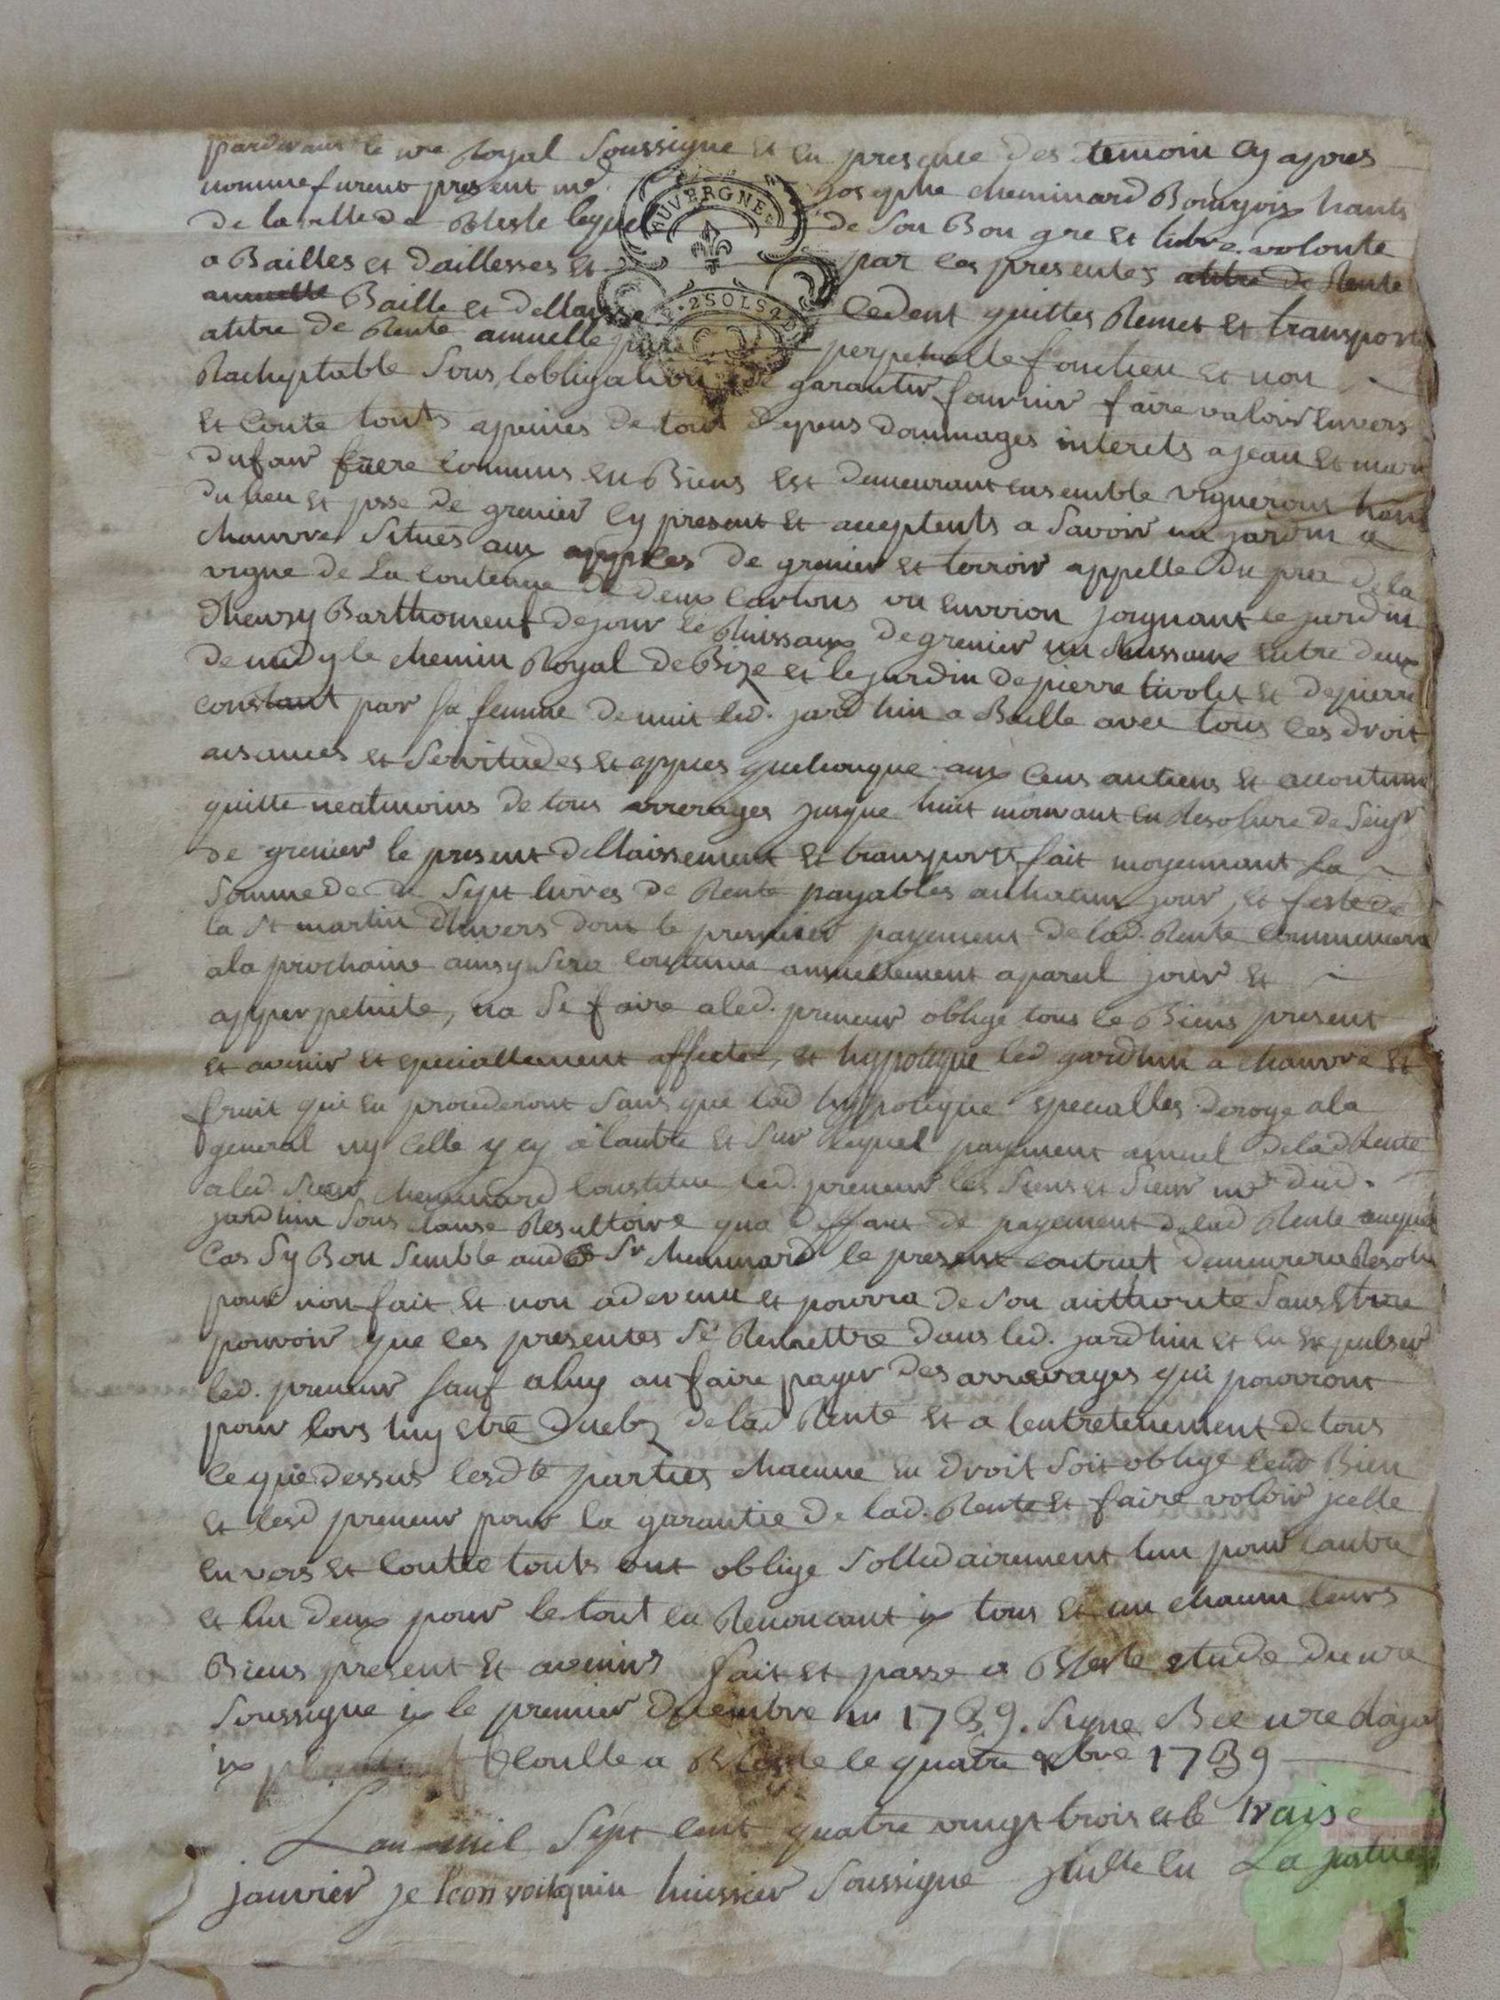 pardevant le nre Royal Soussigne et en presence des temoin cy apres
nomme furent present me Josephe cheminard Bourgois hants
AUVERGNE
de la ville de Blesle lequel de son Bon gre et libre volonte
a Bailles et dailleses et par les presentes atitre de Rente
2SOLS
annuelle Baille et dellaisse cedent quittes Remet et transporte
atitre de Rente annuelle pure perpetuelle fonciere et non
Racheptable Sous lobligation de garantir fournir faire valoir Envers
et Conte touts apeines de tout depens dommages interets a jean et marc
dufour frere communs en Biens est demeurant ensemble vignerons hants
du lieu et psse de grenier cy present et acceptents a Savoir un jardin a
chauvre Situés aux appces de grenier et terroir appelle du pré de la
vigne de La contenue de deux cartons ou environ joignant le jardin
dheursy Barthomeuf de jour le Ruissaux de grenier un Ruissaux entre deux
de midy le chemin Royal de Bize et le jardin de pierre tivolet et de pierre
constant par sa femme de nuit led. jardhin a Baille avec tous ces droit
aisances et Servitudes et appces quelconque aux cens antiens et accoutumé
quitte neatmoins de tous arrerages jusque huit mouvant en de Seigr
de grenier le present dellaissement et transport fait moyennant La
Somme de de Sept livres de Rente payables auchacun jour et feste de
la St martin dhivers dont le premier payement de lad. Rente commencera
ala prochaine ainsy sera continue annuellement apareil jour et
apperpetuité, na Se faire aled. preneur oblige tous le Biens present
et avenir et speciallement affecte, et hypoteque led jardhin a chauvre et
fruit qui en procederont sans que lad hypoteque specialles deroge ala
general ny celle y cy a lautre et Sur lequel payement annuel de lad Rente
aled. Sieur Cheminard Constitue led. preneur les Siens et Sieur me dud.
jardhin Sous clause Resultoire qua deffaut de payement de lad Rente auquel
Cas Sy Bon Semble aud Sr cheminard le present contrat demeurera Resolu
pour non fait et non advenu et pourra de Son authorite Sans Etre
pouvoir que les presentes Se Remettre dans led. jardhin et en expulser
led. preneur sauf aluy au faire payer des arrerages qui pourront
pour lors luy etre dueb de lad Rente et a lentretenement de tous
ce que dessus lesdte parties chacune en droit Soit oblige leur Bien
et lesd preneur pour la garantie de lad. Rente et faire valoir jcelle
envers et Contre touts ont oblige Sollidairement lun pour lautre
et lun deux pour le tout en Renoncant ix tous et un chacun leurs
Biens present et avenirs fait et passe a Blesle etude du nre
Soussigne ix le premier decembre m 1739. Signe Bee nre Royal
ix Controlle a Blesle le quatre xbre 1739
Lan mil Sept Cent quatre vingt trois et le traise
janvier je huissier Soussigne La justice